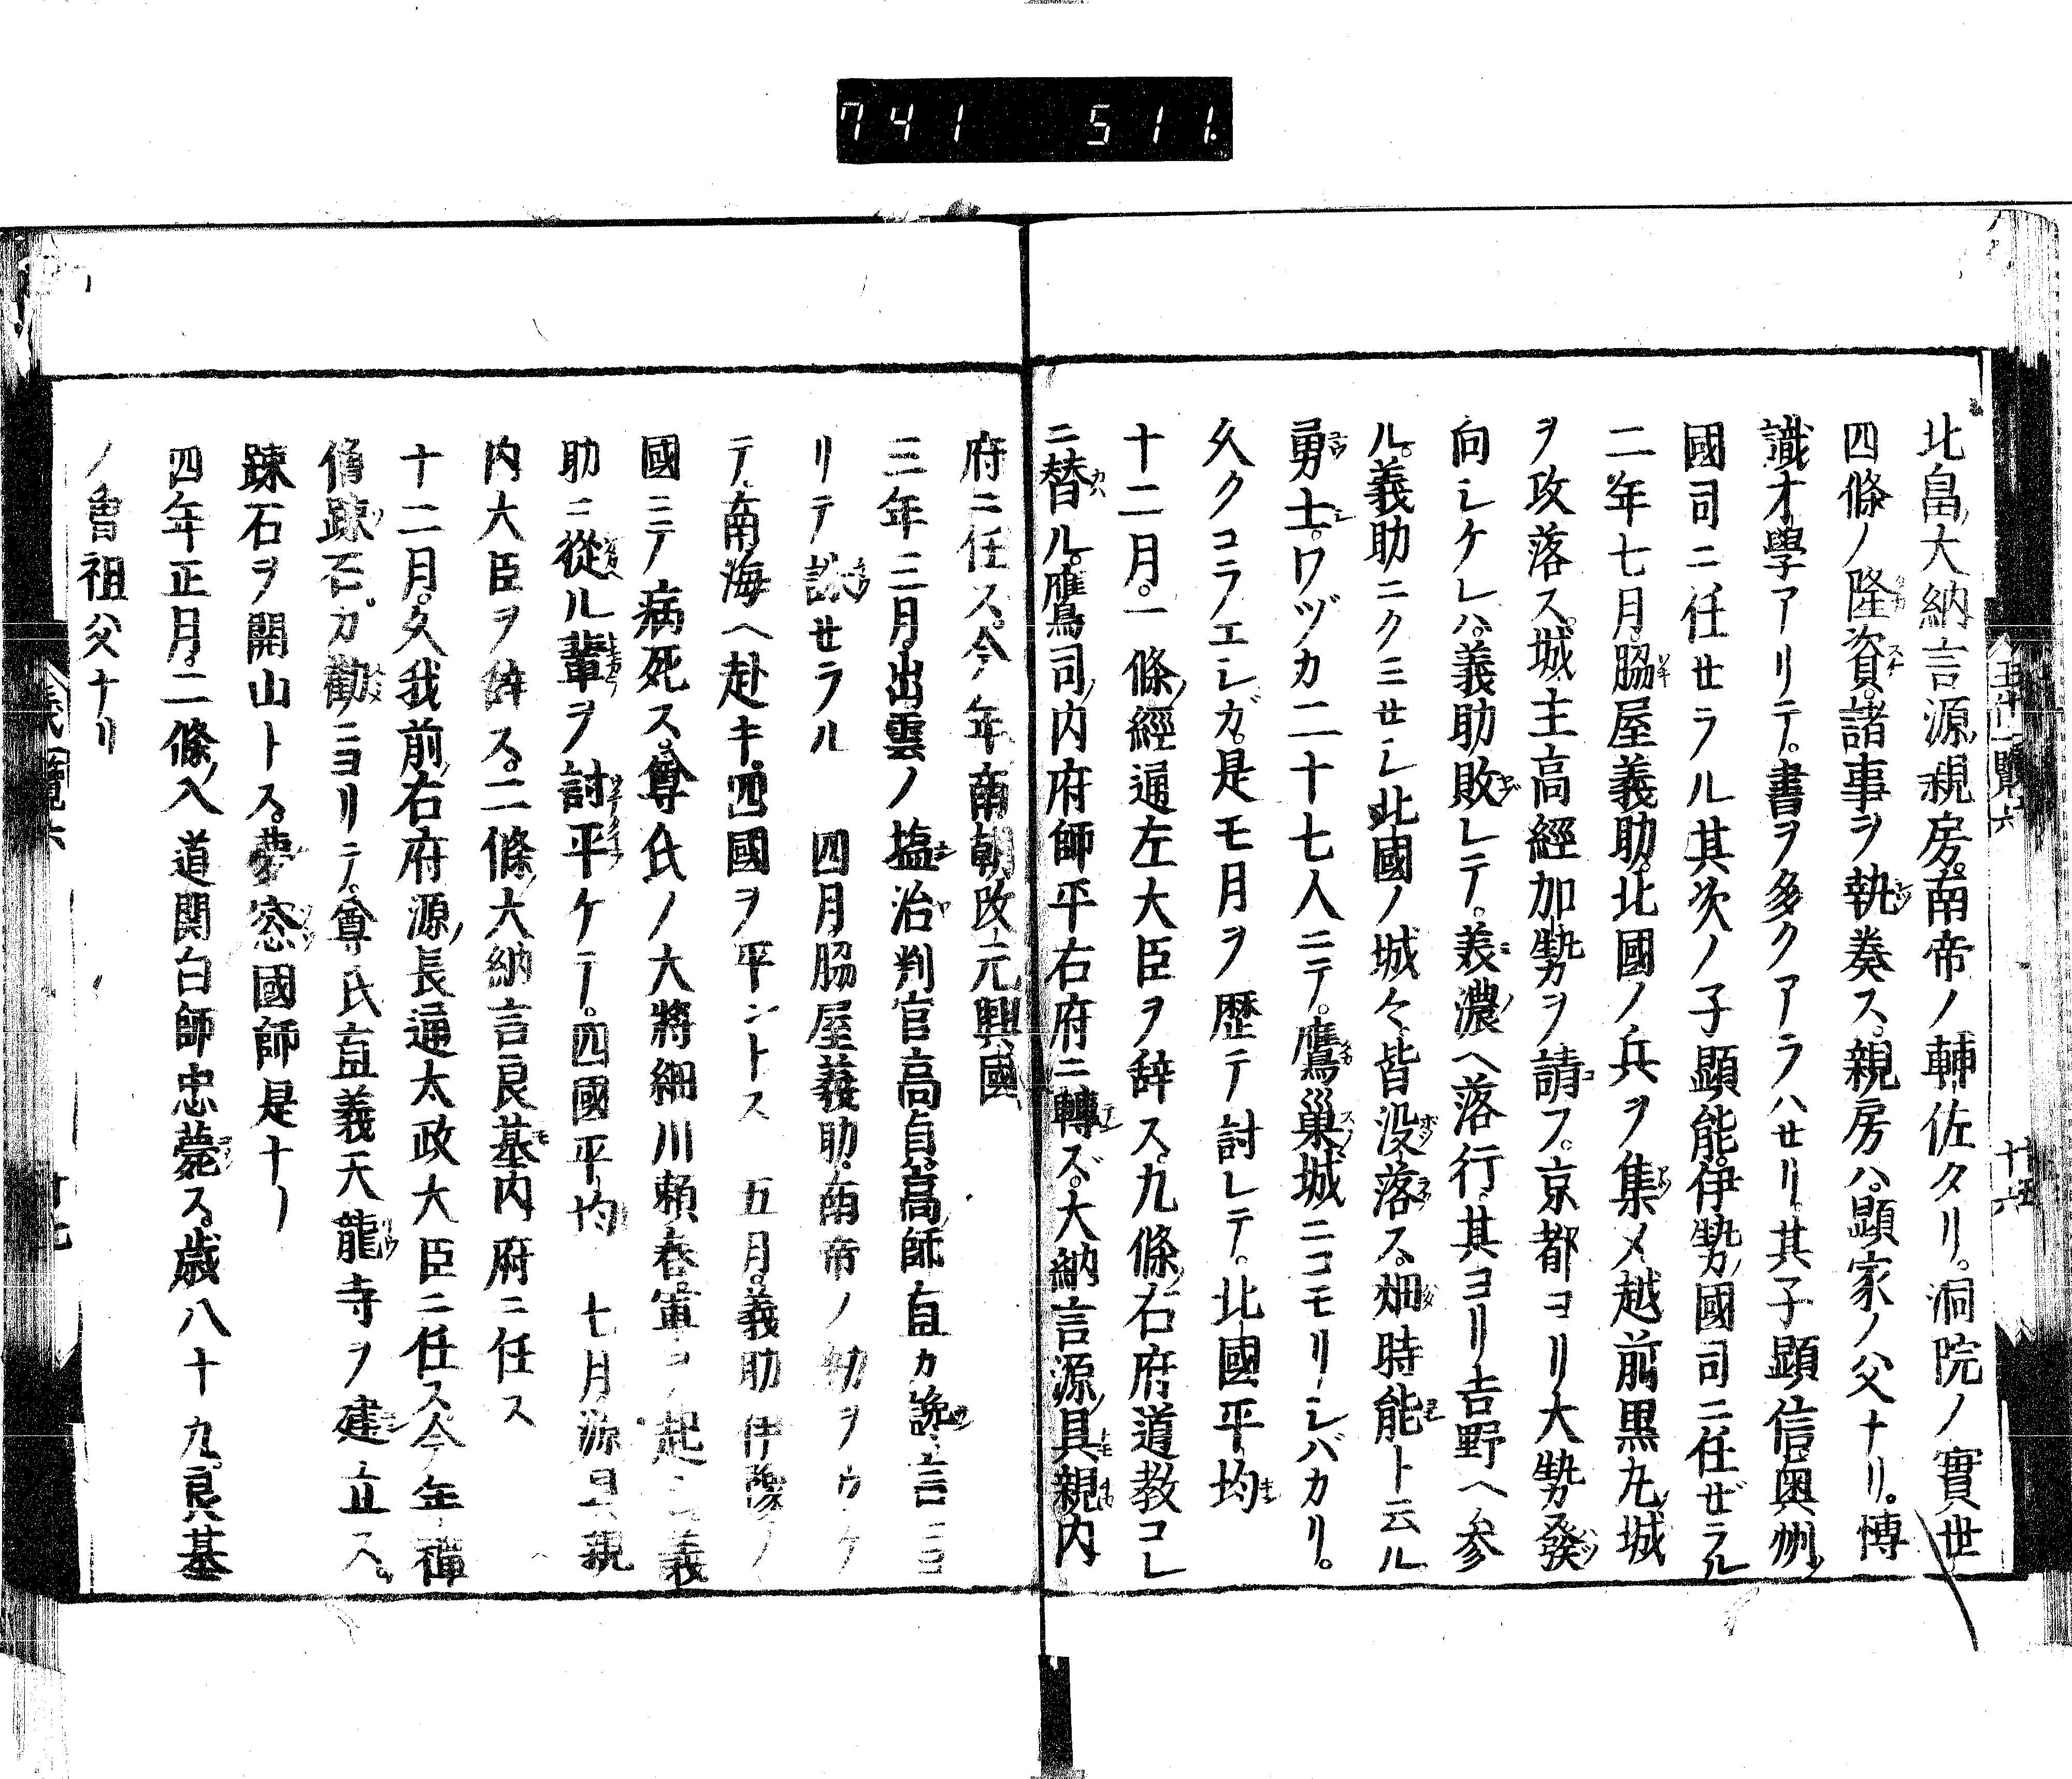 741 511
北畠大納言源親房南帝ノ輔佐タリ。洞院ノ實世。
四條ノ隆資。諸事ヲ執奏ス。親房ハ顕家ノ父ナリ。博
識才學アリテ。書ヲ多クアラハセリ。其子顕信奥州ノ
國司ニ任セラル其次ノ子顕能。伊勢ノ國司ニ任ゼラル
二年七月。脇屋義助。北國ノ兵ヲ集メ越前黒丸ノ城
ヲ攻落ス。城主高經加勢ヲ請フ。京都ヨリ大勢發
向シケレハ。義助敗レテ。美濃ヘ落行。其ヨリ吉野ヘ参
ル。義助ニクミセシ北國ノ城々皆没落ス。畑時能ト云ル
勇士。ワヅカ二十七人ニテ。鷹巣城ニコモリシバカリ。
久クコラエシガ。是モ月ヲ歴テ討レテ。北國平均
十二月。一條ノ經通左大臣ヲ辞ス。九條ノ右府道教コレ
ニ替ル。鷹司ノ内府師平右府ニ轉ズ。大納言源ノ具親内
府ニ任ス。今年南朝改元興國
三年三月。出雲ノ塩冶判官高貞。高師直カ讒言ニヨ
リテ誅セラル 四月脇屋義助。南帝ノ勅ヲウケ
テ。南海ヘ赴キ。四國ヲ平ントス 五月。義助伊豫ノ
國ニテ病死ス。尊氏ノ大將細川頼春。軍ヲ起シ義
助ニ從ル輩ヲ討平ケテ。四國平均 七月源具親
内大臣ヲ辞ス。二條ノ大納言良基内府ニ任ス
十二月。久我前ノ右府源ノ長通太政大臣ニ任ス。今年禅
僧踈石カ勸ニヨリテ。尊氏直義天龍寺ヲ建立ス。
踈石ヲ開山トス。夢窓國師是ナリ
四年正月。二條ノ入道関白師忠薨ス。歳八十九。良基
ノ曾祖父ナリ